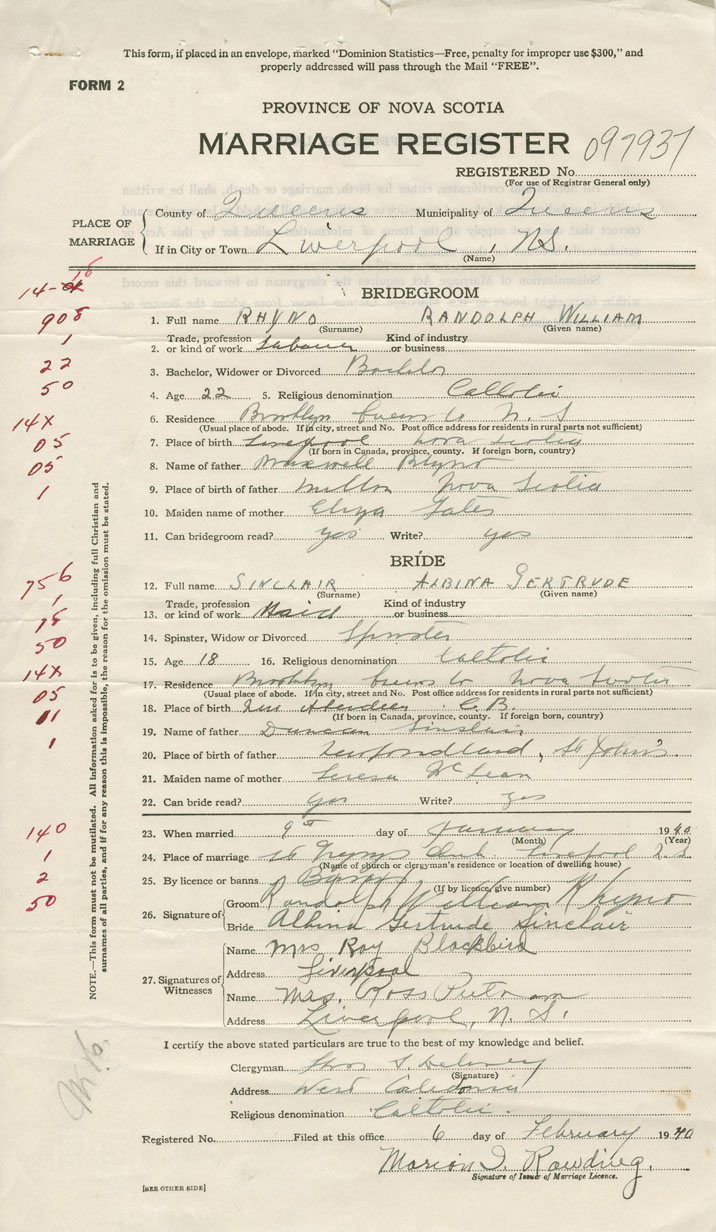 This form, if placed in an envelope, marked "Dominion Statistics—Free, penalty for improper use $300," and
properly addressed will pass through the Mail "FREE".
FORM 2
PROVINCE OF NOVA SCOTIA
MARRIAGE REGISTER 097937
REGISTERED No.
(For use of Registrar General only)
PLACE OF MARRIAGE
County of Queens Municipality of Queens
If in City or Town Liverpool, N.S.
(Name)
BRIDEGROOM
1. Full name RHYNO RANDOLPH WILLIAM
(Surname) (Given name)
2. Trade, profession or kind of work Labourer Kind of industry or business
3. Bachelor, Widower or Divorced Bachelor
4. Age 22 5. Religious denomination Catholic
6. Residence Brooklyn Queens Co N. S
(Usual place of abode. If in city, street and No. Post office address for residents in rural parts not sufficient)
7. Place of birth Liverpool Nova Scotia
(If born in Canada, province, county. If foreign born, country)
8. Name of father Maxwell Rhyno
9. Place of birth of father Milton Nova Scotia
10. Maiden name of mother Gates
11. Can bridegroom read? yes Write? yes
BRIDE
12. Full name SINCLAIR ALBINA GERTRUDE
(Surname) (Given name)
13. Trade, profession or kind of work Maid Kind of industry or business
14. Spinster, Widow or Divorced Spinster
15. Age 18 16. Religious denomination Catholic
17. Residence Brooklyn Queens Co Nova Scotia
(Usual place of abode. If in city, street and No. Post office address for residents in rural parts not sufficient)
18. Place of birth New Aberdeen C.B.
(If born in Canada, province, county. If foreign born, country)
19. Name of father Duncan Sinclair
20. Place of birth of father Newfoundland, St John's
21. Maiden name of mother Teresa McLean
22. Can bride read? Yes Write? yes
23. When married 9th day of January 1940
(Month) (Year)
24. Place of marriage Liverpool N.S.
(Name of church or clergyman's residence or location of dwelling house)
25. By licence or banns Banns
(If by licence, give number)
26. Signature of
Groom Randolph William Rhyno
Bride Albina Gertrude Sinclair
27. Signatures of Witnesses
Name Mrs Roy Blackbird
Address Liverpool
Name Mrs. Ross Putnam
Address Liverpool, N. S.
I certify the above stated particulars are true to the best of my knowledge and belief.
Clergyman
(Signature)
Address West Caledonia
Religious denomination Catholic.
Registered No. Filed at this office 6 day of February 1940
Marion I. Rawding.
Signature of Issuer of Marriage Licence.
[SEE OTHER SIDE]
NOTE.—This form must not be mutilated. All information asked for is to be given, including full Christian and
surnames of all parties, and if for any reason this is impossible, the reason for the omission must be stated.
908
1
22
50
14X
05
05
1
756
1
18
50
14X
05
11
1
140
1
2
50